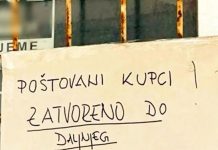 IJEME
POŠTOVANI KUPCI !
ZATVORENO DO
DALJNJEG